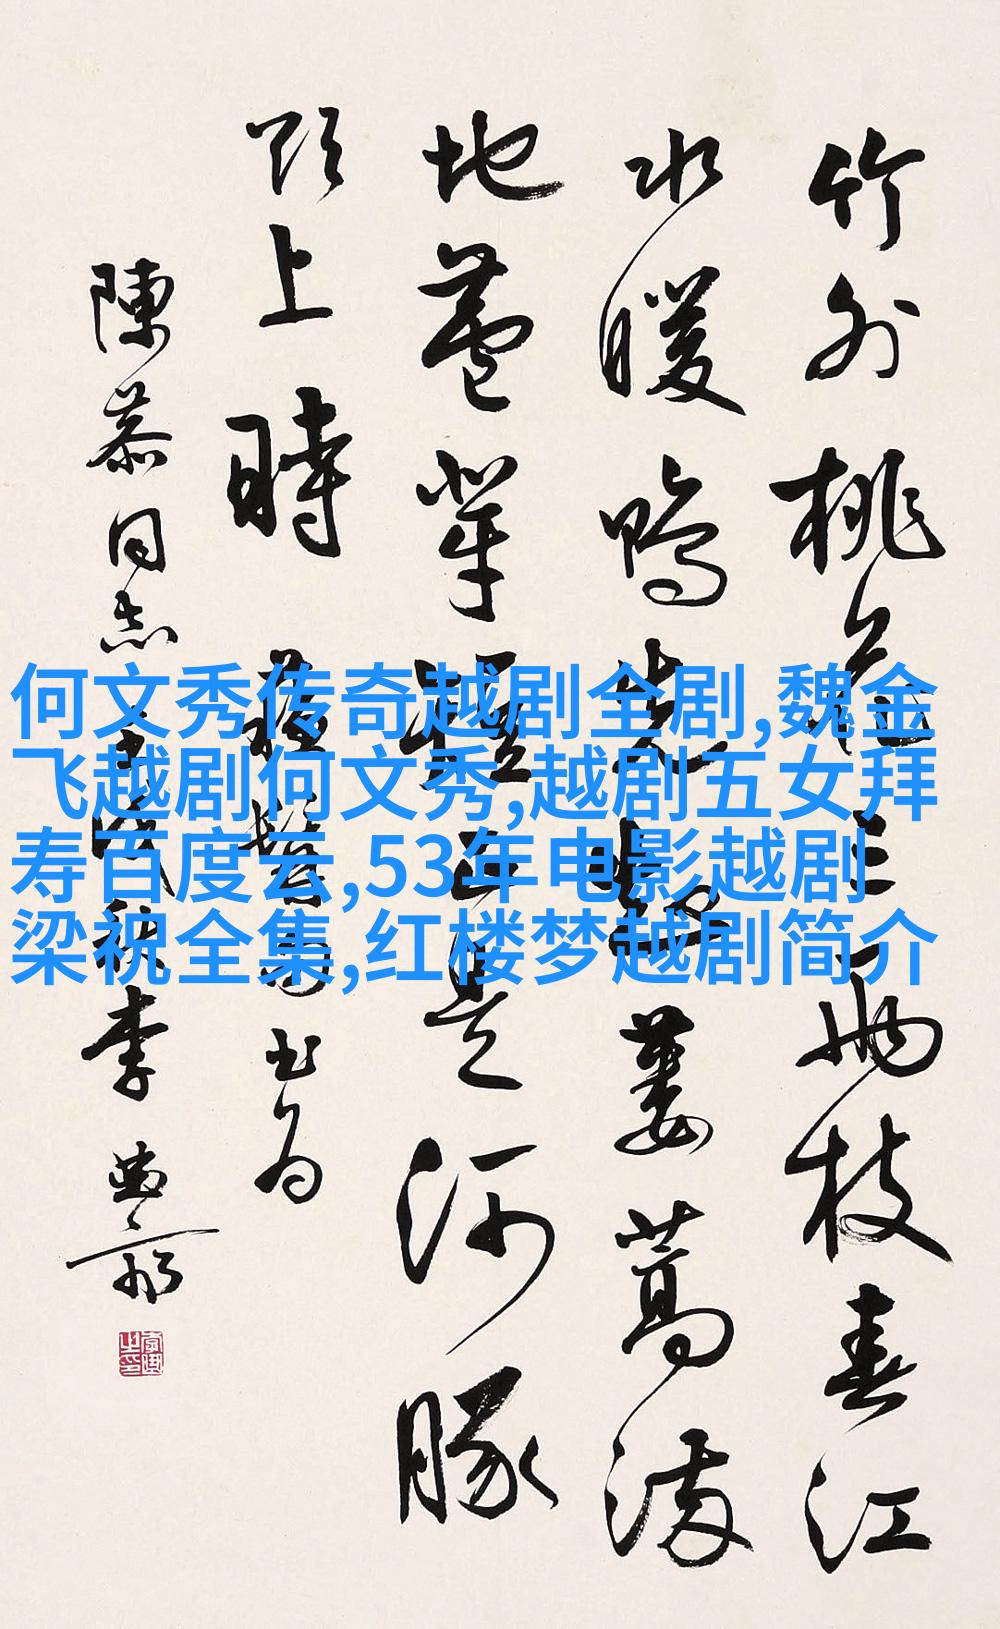 何文秀传奇越剧全剧,魏金
飞越剧何文秀,越剧五女拜
寿百度云,53年电影越剧
梁祝全集,红楼梦越剧简介
竹外桃花三兩枝春江
水暖鴨先知蔞蒿滿
地蘆芽短正是河豚
欲上時 蘇髯 书为
陳慕同志 秋李